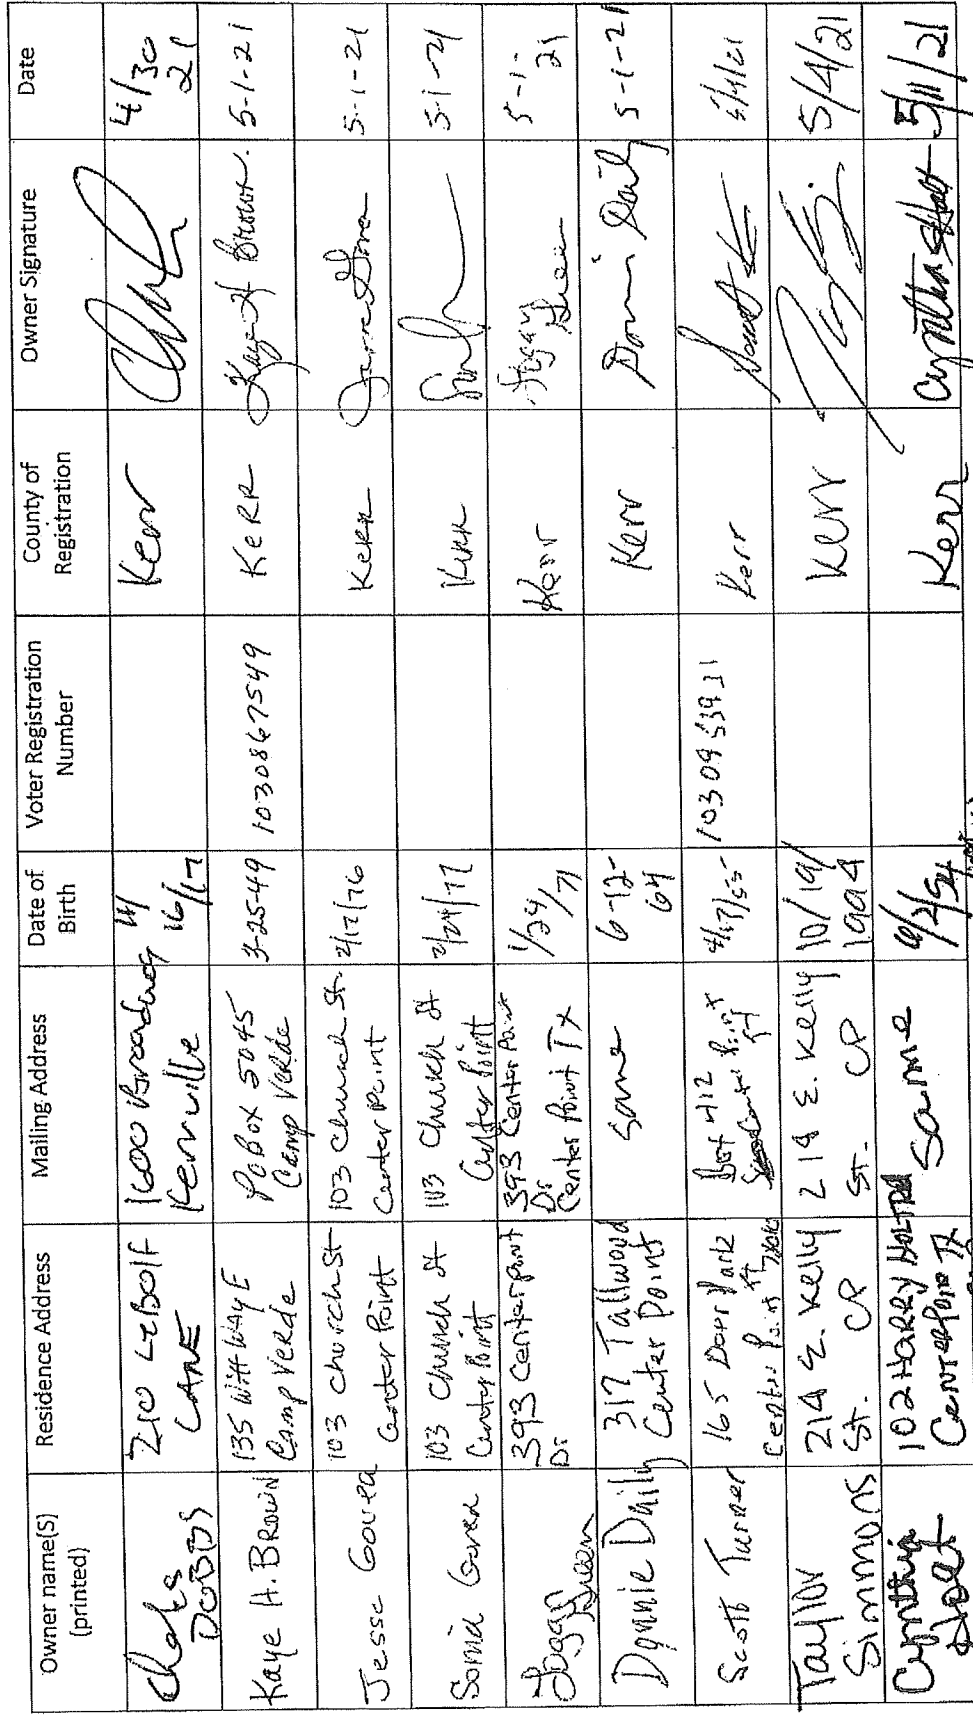 Owner name(S) (printed) | Residence Address | Mailing Address | Date of Birth | Voter Registration Number | County of Registration | Owner Signature | Date
Charles Dobbs | 210 LeBolf Lane | 1600 Broadway Kerrville | 16/17 | Kerr | 4/30 21
Kaye H. Brown | 135 Witt Way E Camp Verde | PO Box 5045 Camp Verde | 3-25-49 | 1030867549 | KeRR | Kaye H Brown. | 5-1-21
Jesse Govea | 103 Church St Center Point | 103 Church St. Center Point | 2/17/76 | KeRR | Jesse Govea | 5-1-21
Sonia Govea | 103 Church St Center Point | 103 Church St Center Point | 2/24/77 | Kerr | 5-1-21
Peggy Green | 393 Centerpoint Dr | 393 Center Point Dr Center Point TX | 1/24/71 | Kerr | Peggy Green | 5-1-21
Donnie Daily | 317 Tallwood Center Point | Same | 6-12-64 | Kerr | Donnie Daily | 5-1-21
Scott Turner | 165 Park Center Point | Box 412 | 4/17/55 | Kerr
Taylor Simmons | 214 E. Kelly St. CP | 214 E. Kelly St. CP | 10/19/1994 | Kerr | 5/4/21
Cynthia Holt | 102 Harry Holt Rd Centerpoint TX | Same | 6/2/54 | Kerr | Cynthia Holt | 5/11/21